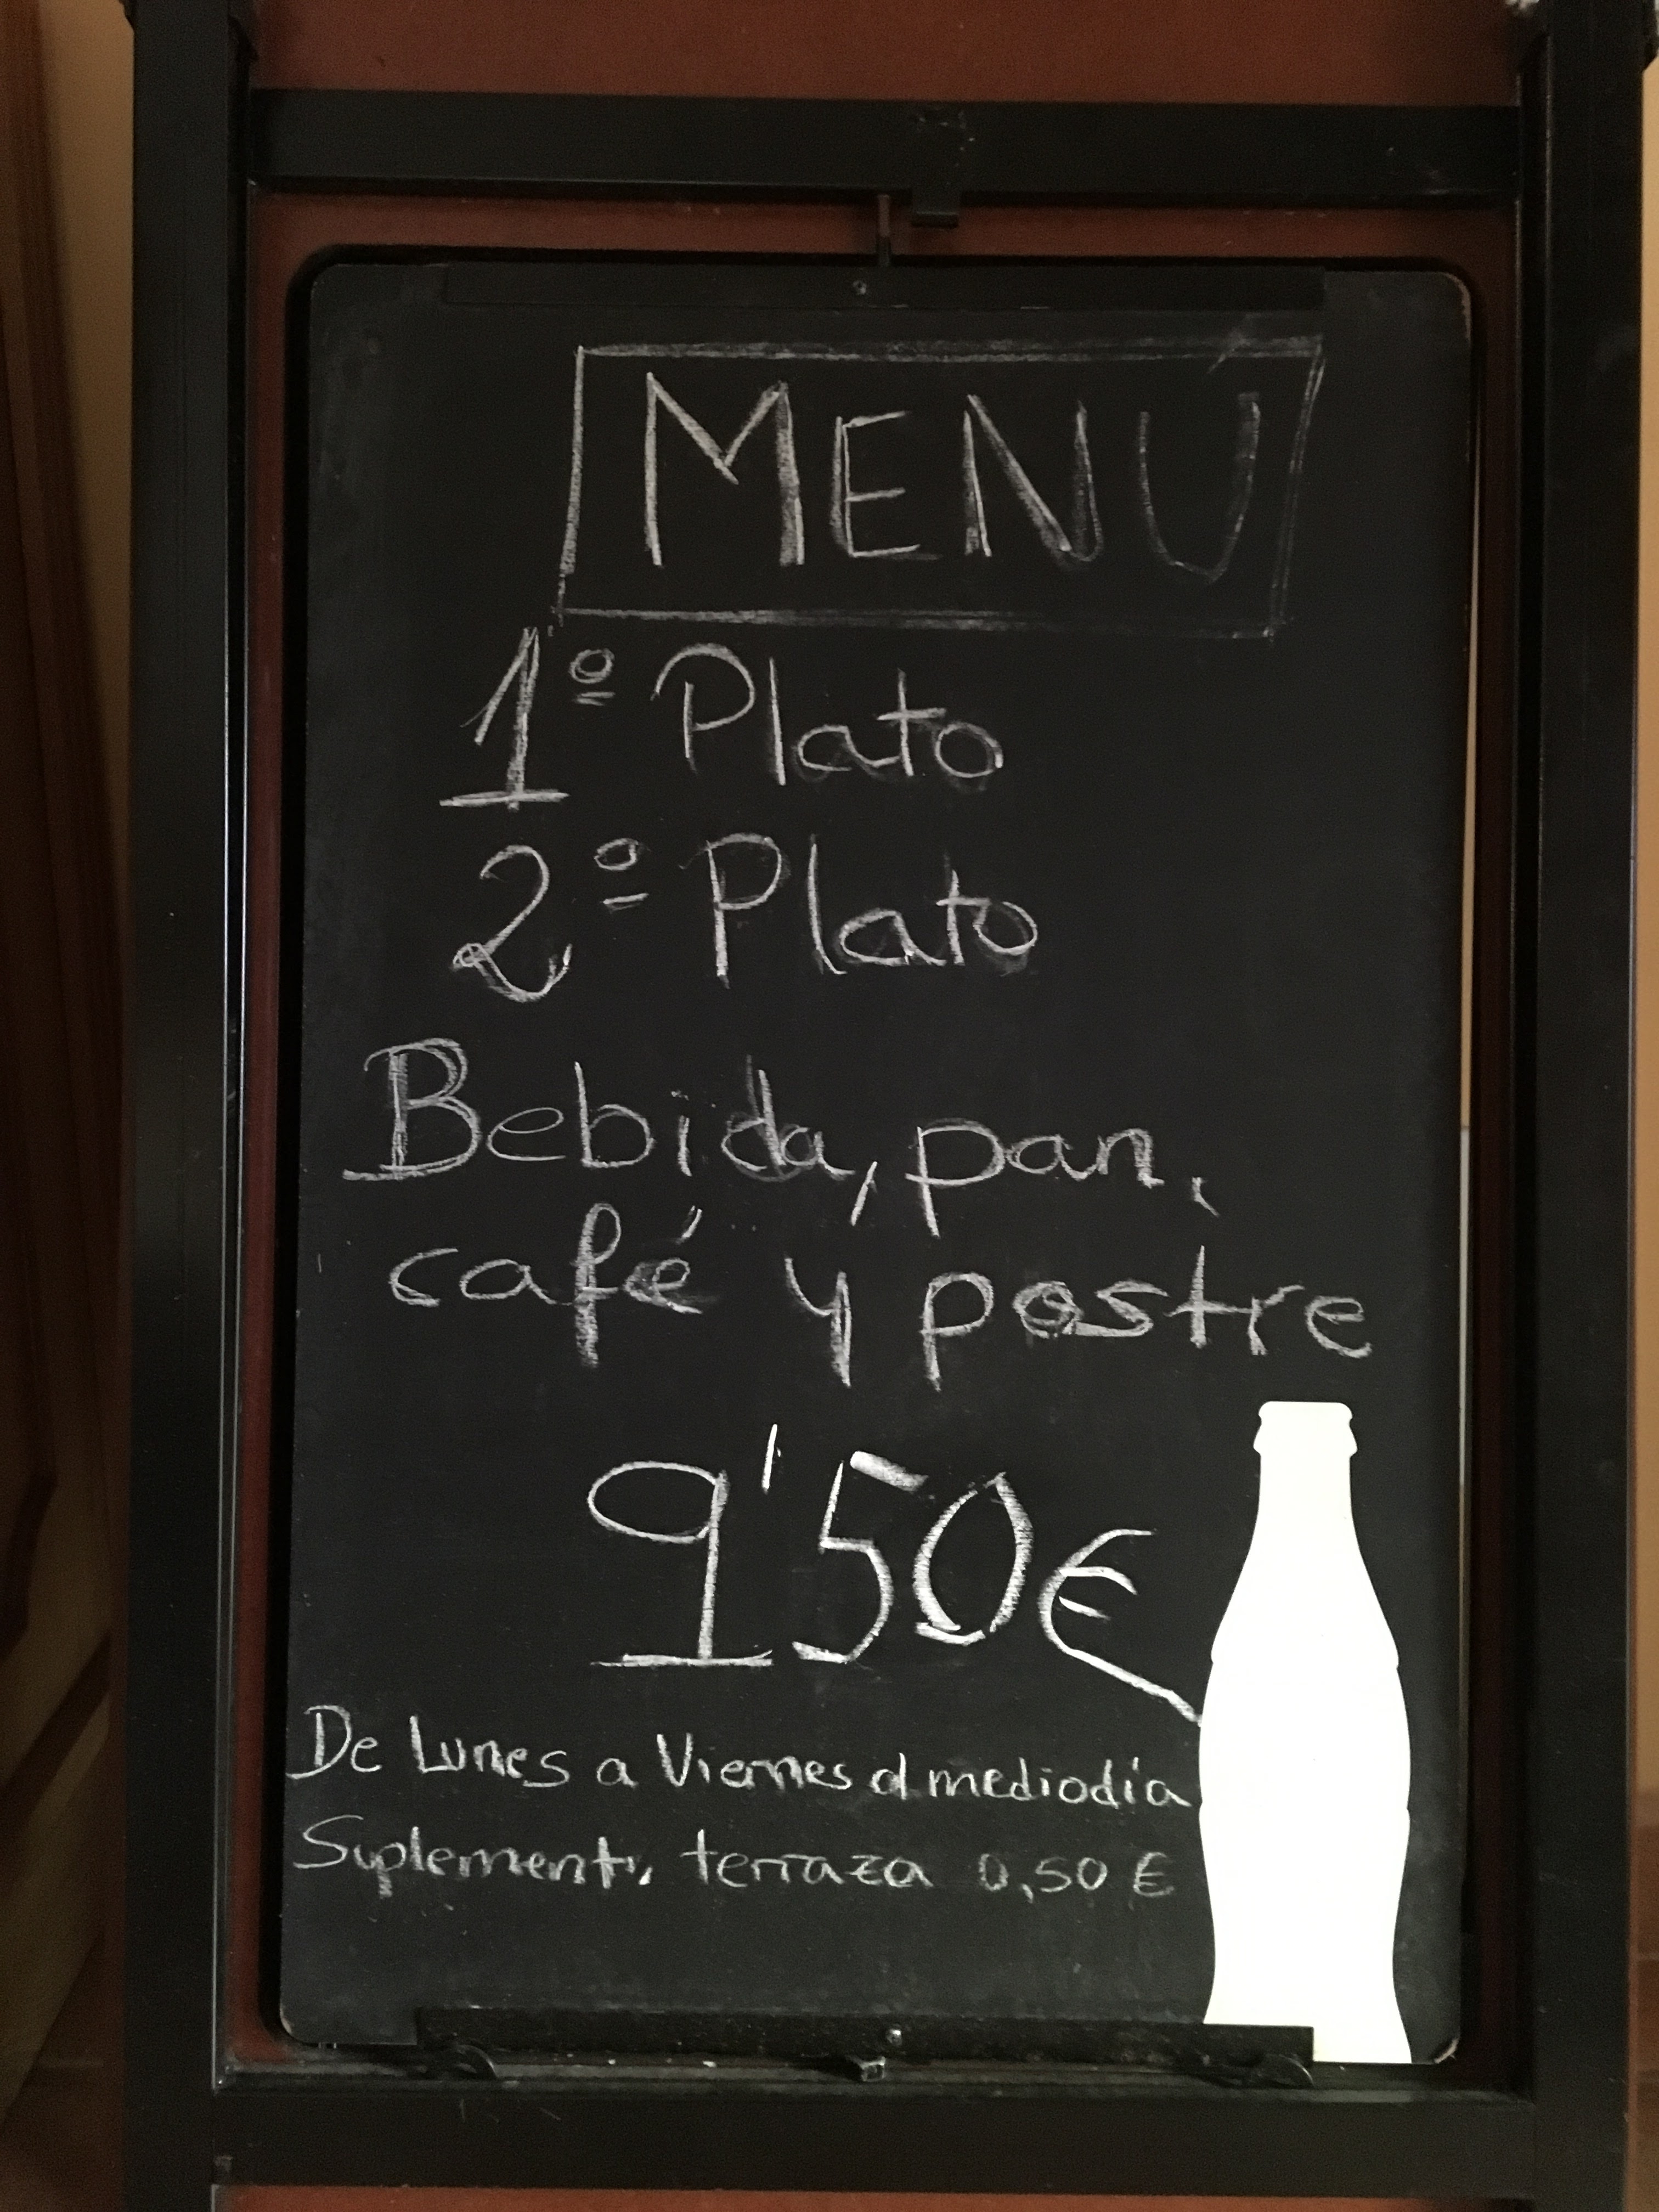 MENÚ
1º Plato
2º Plato
Bebida, pan,
café y postre
9'50€
De Lunes a Viernes al mediodía
Suplemento terraza 0,50 €